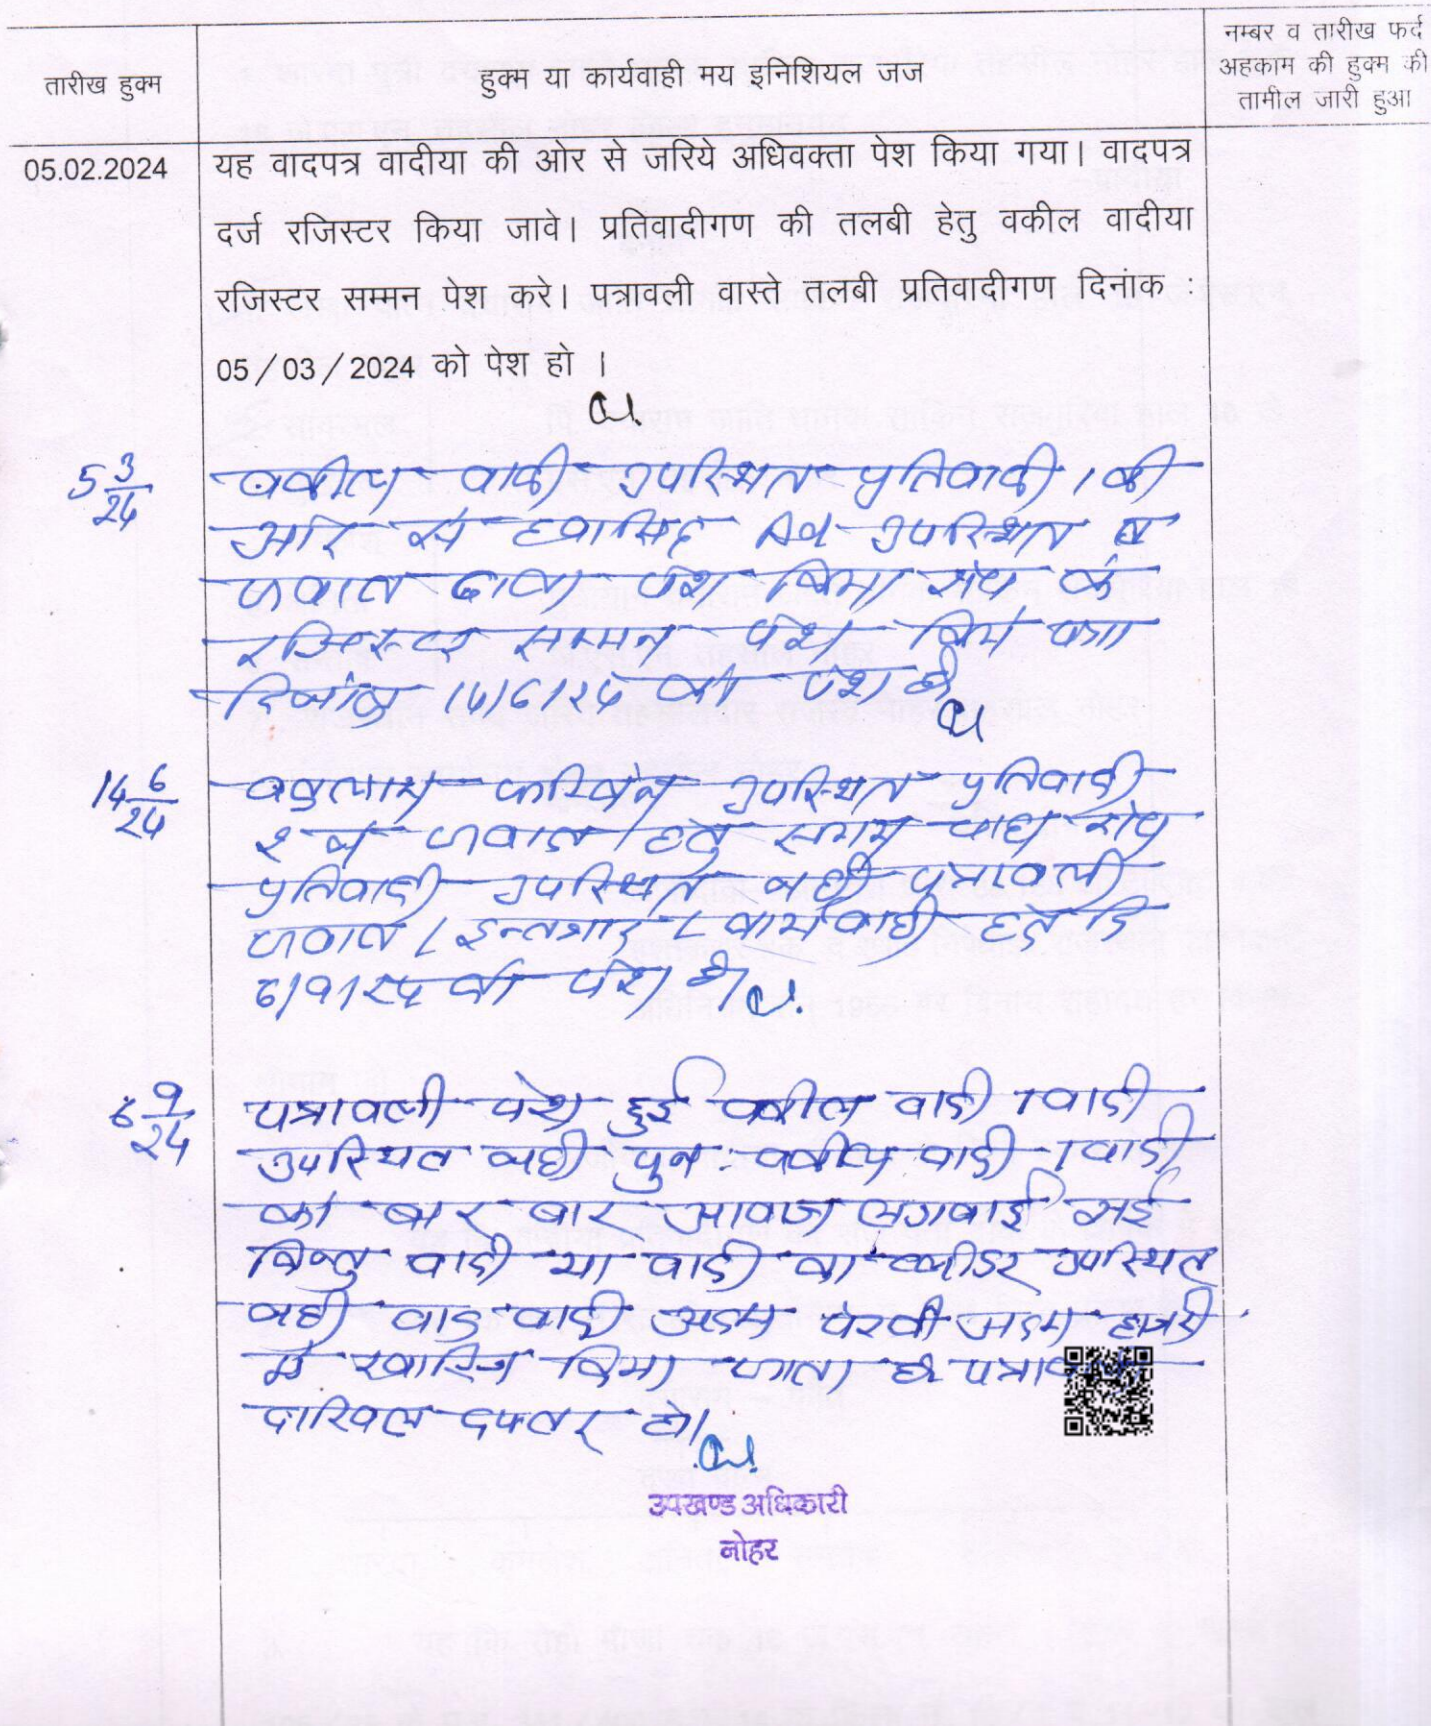 तारीख हुक्म
हुक्म या कार्यवाही मय इनिशियल जज
नम्बर व तारीख फर्द
अहकाम की हुक्म की
तामील जारी हुआ
05.02.2024
यह वादपत्र वादीया की ओर से जरिये अधिवक्ता पेश किया गया। वादपत्र
दर्ज रजिस्टर किया जावे। प्रतिवादीगण की तलबी हेतु वकील वादीया
रजिस्टर सम्मन पेश करे। पत्रावली वास्ते तलबी प्रतिवादीगण दिनांक
05/03/2024 को पेश हो ।
5 3/24
वकील वादी उपस्थित प्रतिवादी 1 की
ओर से Adv उपस्थित
जवाब दावा पेश किया शेष के
रजिस्टर सम्मन पेश किये पत्रा
दिनांक 14/6/24 को पेश हो
14 6/24
वकुलाय फरिकेन उपस्थित प्रतिवादी
जवाब हेतु समय चाहा शेष
प्रतिवादी उपस्थित नही पत्रावली
जवाब / इन्तजार / कार्यवाही हेतु दि
6/9/24 को पेश हो।
6 9/24
पत्रावली पेश हुई वकील वादी / वादी
उपस्थित नही पुनः वकील वादी / वादी
को बार बार आवाज लगवाई गई
किन्तु वादी या वादी का प्लीडर उपस्थित
नही वाद वादी अदम पेरवी अदम हाजरी
में खारिज किया जाता है पत्रावली
दाखिल दफ्तर हो।
उपखण्ड अधिकारी
नोहर